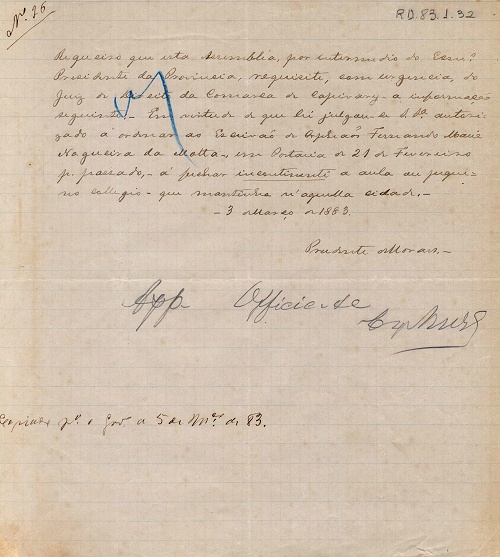 Nº 26
RD.83.1.32
Requeiro que esta Assemblea, por intermedio do Exmº
Presidente da Provincia, requisite, com urgencia, do
Juiz de Direito da Comarca de Capivary a informação
seguinte – Em virtude de que lei julgou-se S. Sª autori-
zado a ordenar ao Escrivão de Orphãos Fernando Maria
Nogueira da Motta, em Portaria de 21 de Fevereiro
p. passado, – a fechar incontinente a aula ou peque-
no collegio – que mantinha n'aquella cidade. –
– 3 de Março de 1883.
Prudente de Moraes. –
App Officie-se
pª o Govº a 5 de Mçº de 83.